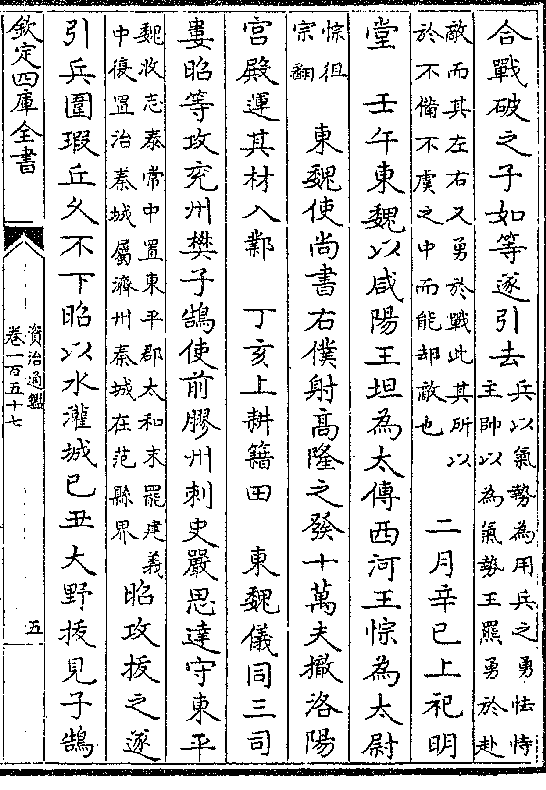 合戰破之子如等遂引去兵以氣勢為用兵之勇怯恃
主帥以為氣勢王羆勇於赴
敵而其左右又勇於戰此其所以
於不備不虞之中而能却敵也二月辛巳上祀明
堂　壬午東魏以咸陽王坦為太傅西河王悰為太尉
悰徂
宗翻　東魏使尚書右僕射高隆之發十萬夫撤洛陽
宮殿運其材入鄴　丁亥上耕籍田　東魏儀同三司
婁昭等攻兖州樊子鵠使前膠州刺史嚴思達守東平
魏收志泰常中置東平郡太和末罷建義
中復置治秦城屬濟州秦城在范縣界昭攻拔之遂
引兵圍瑕丘久不下昭以水灌城己丑大野拔見子鵠
欽定四庫全書
資治通鑑
卷一百五十七
五